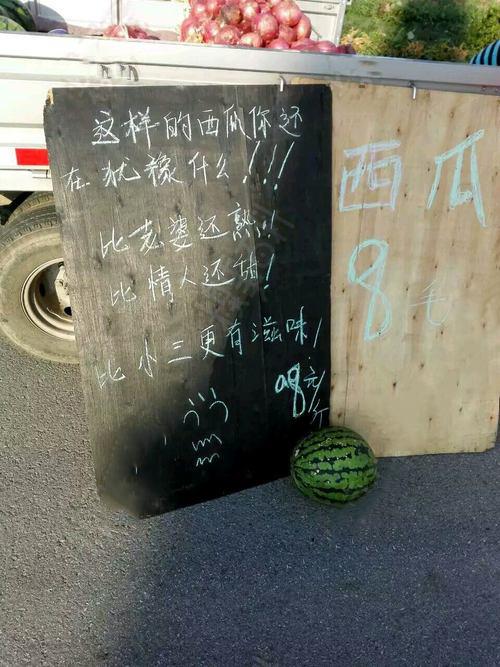 这样的西瓜你还
在犹豫什么!!!
比老婆还熟!!
比情人还甜!
比小三更有滋味!
0.8元/斤
西瓜
8毛